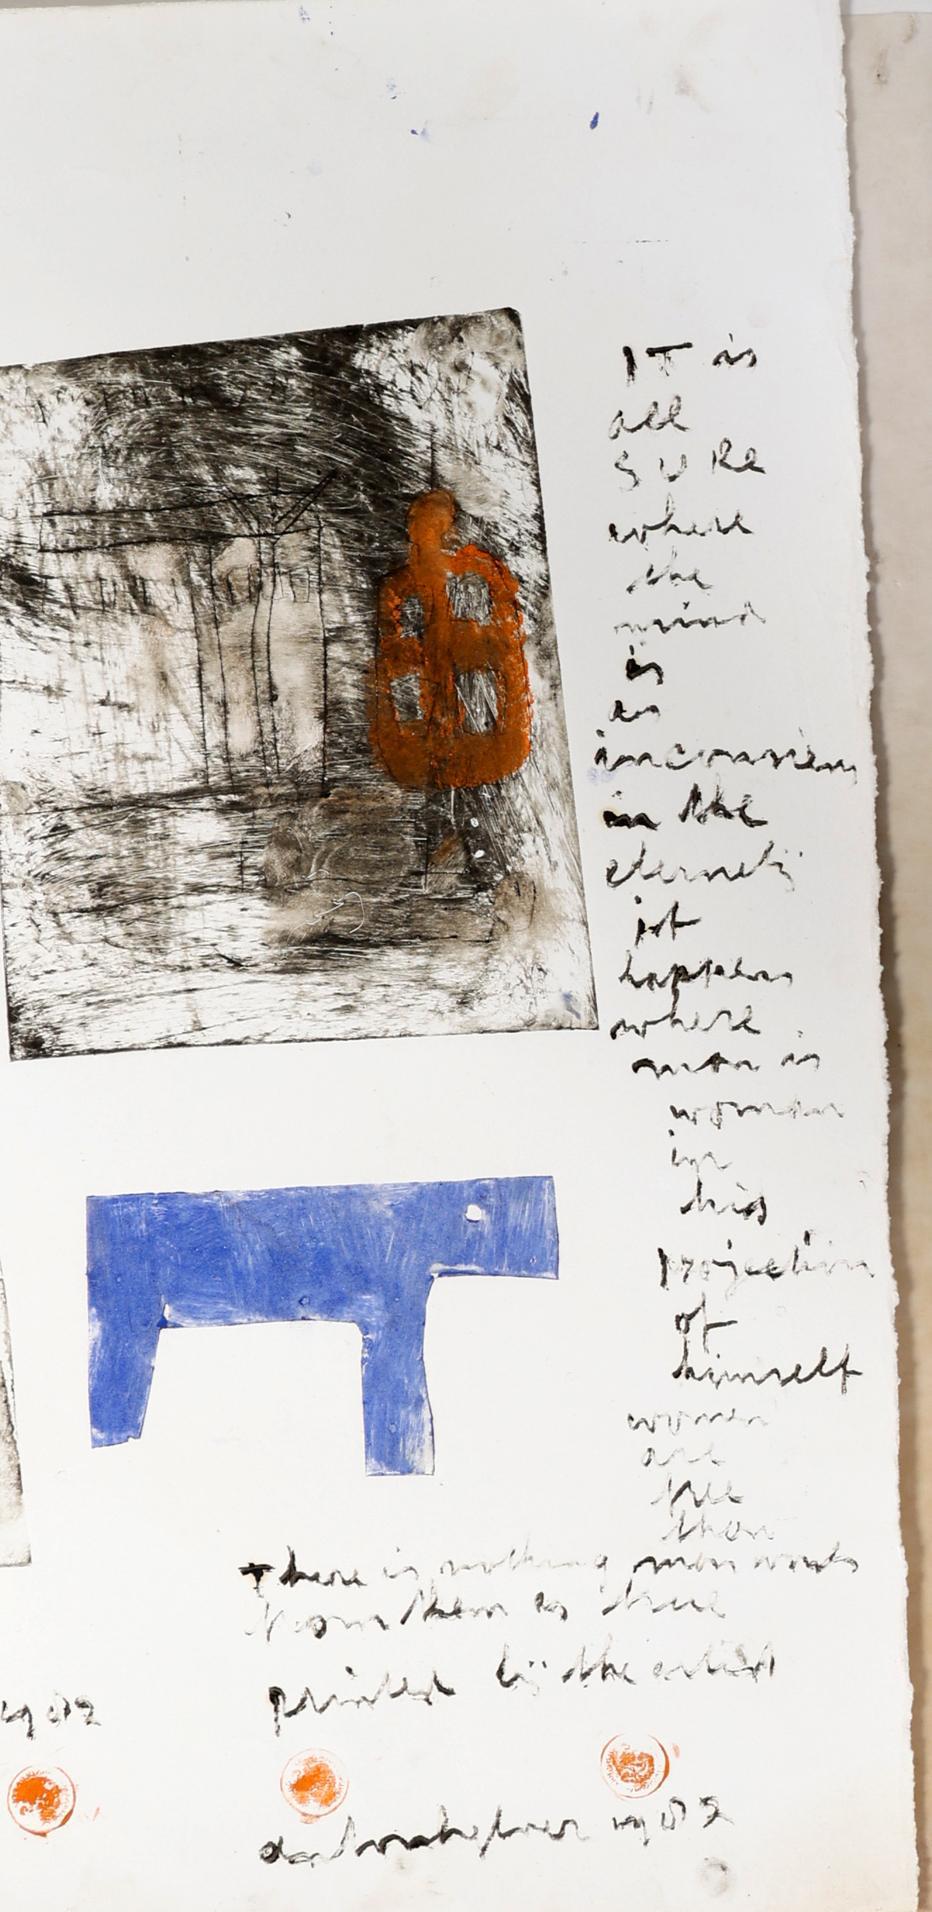 IT is
all
SURe
where
the
mind
is
as
in the
eternety
ist
happens
where
man is
woman
in
his
projection
of
himself
women
are
free
then
There is nothing man wants
from them is true
printed by the artist
1982
anton heyboer 1982